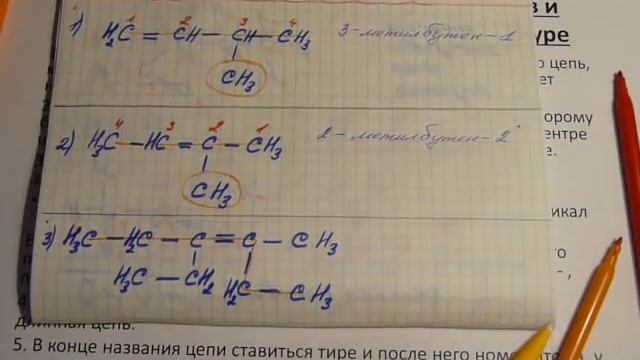 1) H₂C = CH – CH – CH₃ 3-метилбутен-1
1 2 3 4
CH₃
2) H₃C – HC = C – CH₃ 2-метилбутен-2
4 3 2 1
CH₃
3) H₃C – H₂C – C = C – CH₃
H₃C – CH₂ H₂C – CH₃
в и
уре
цепь,
ет
орому
ентре
е.
икал
го
длинная цепь.
5. В конце названия цепи ставиться тире и после него номер